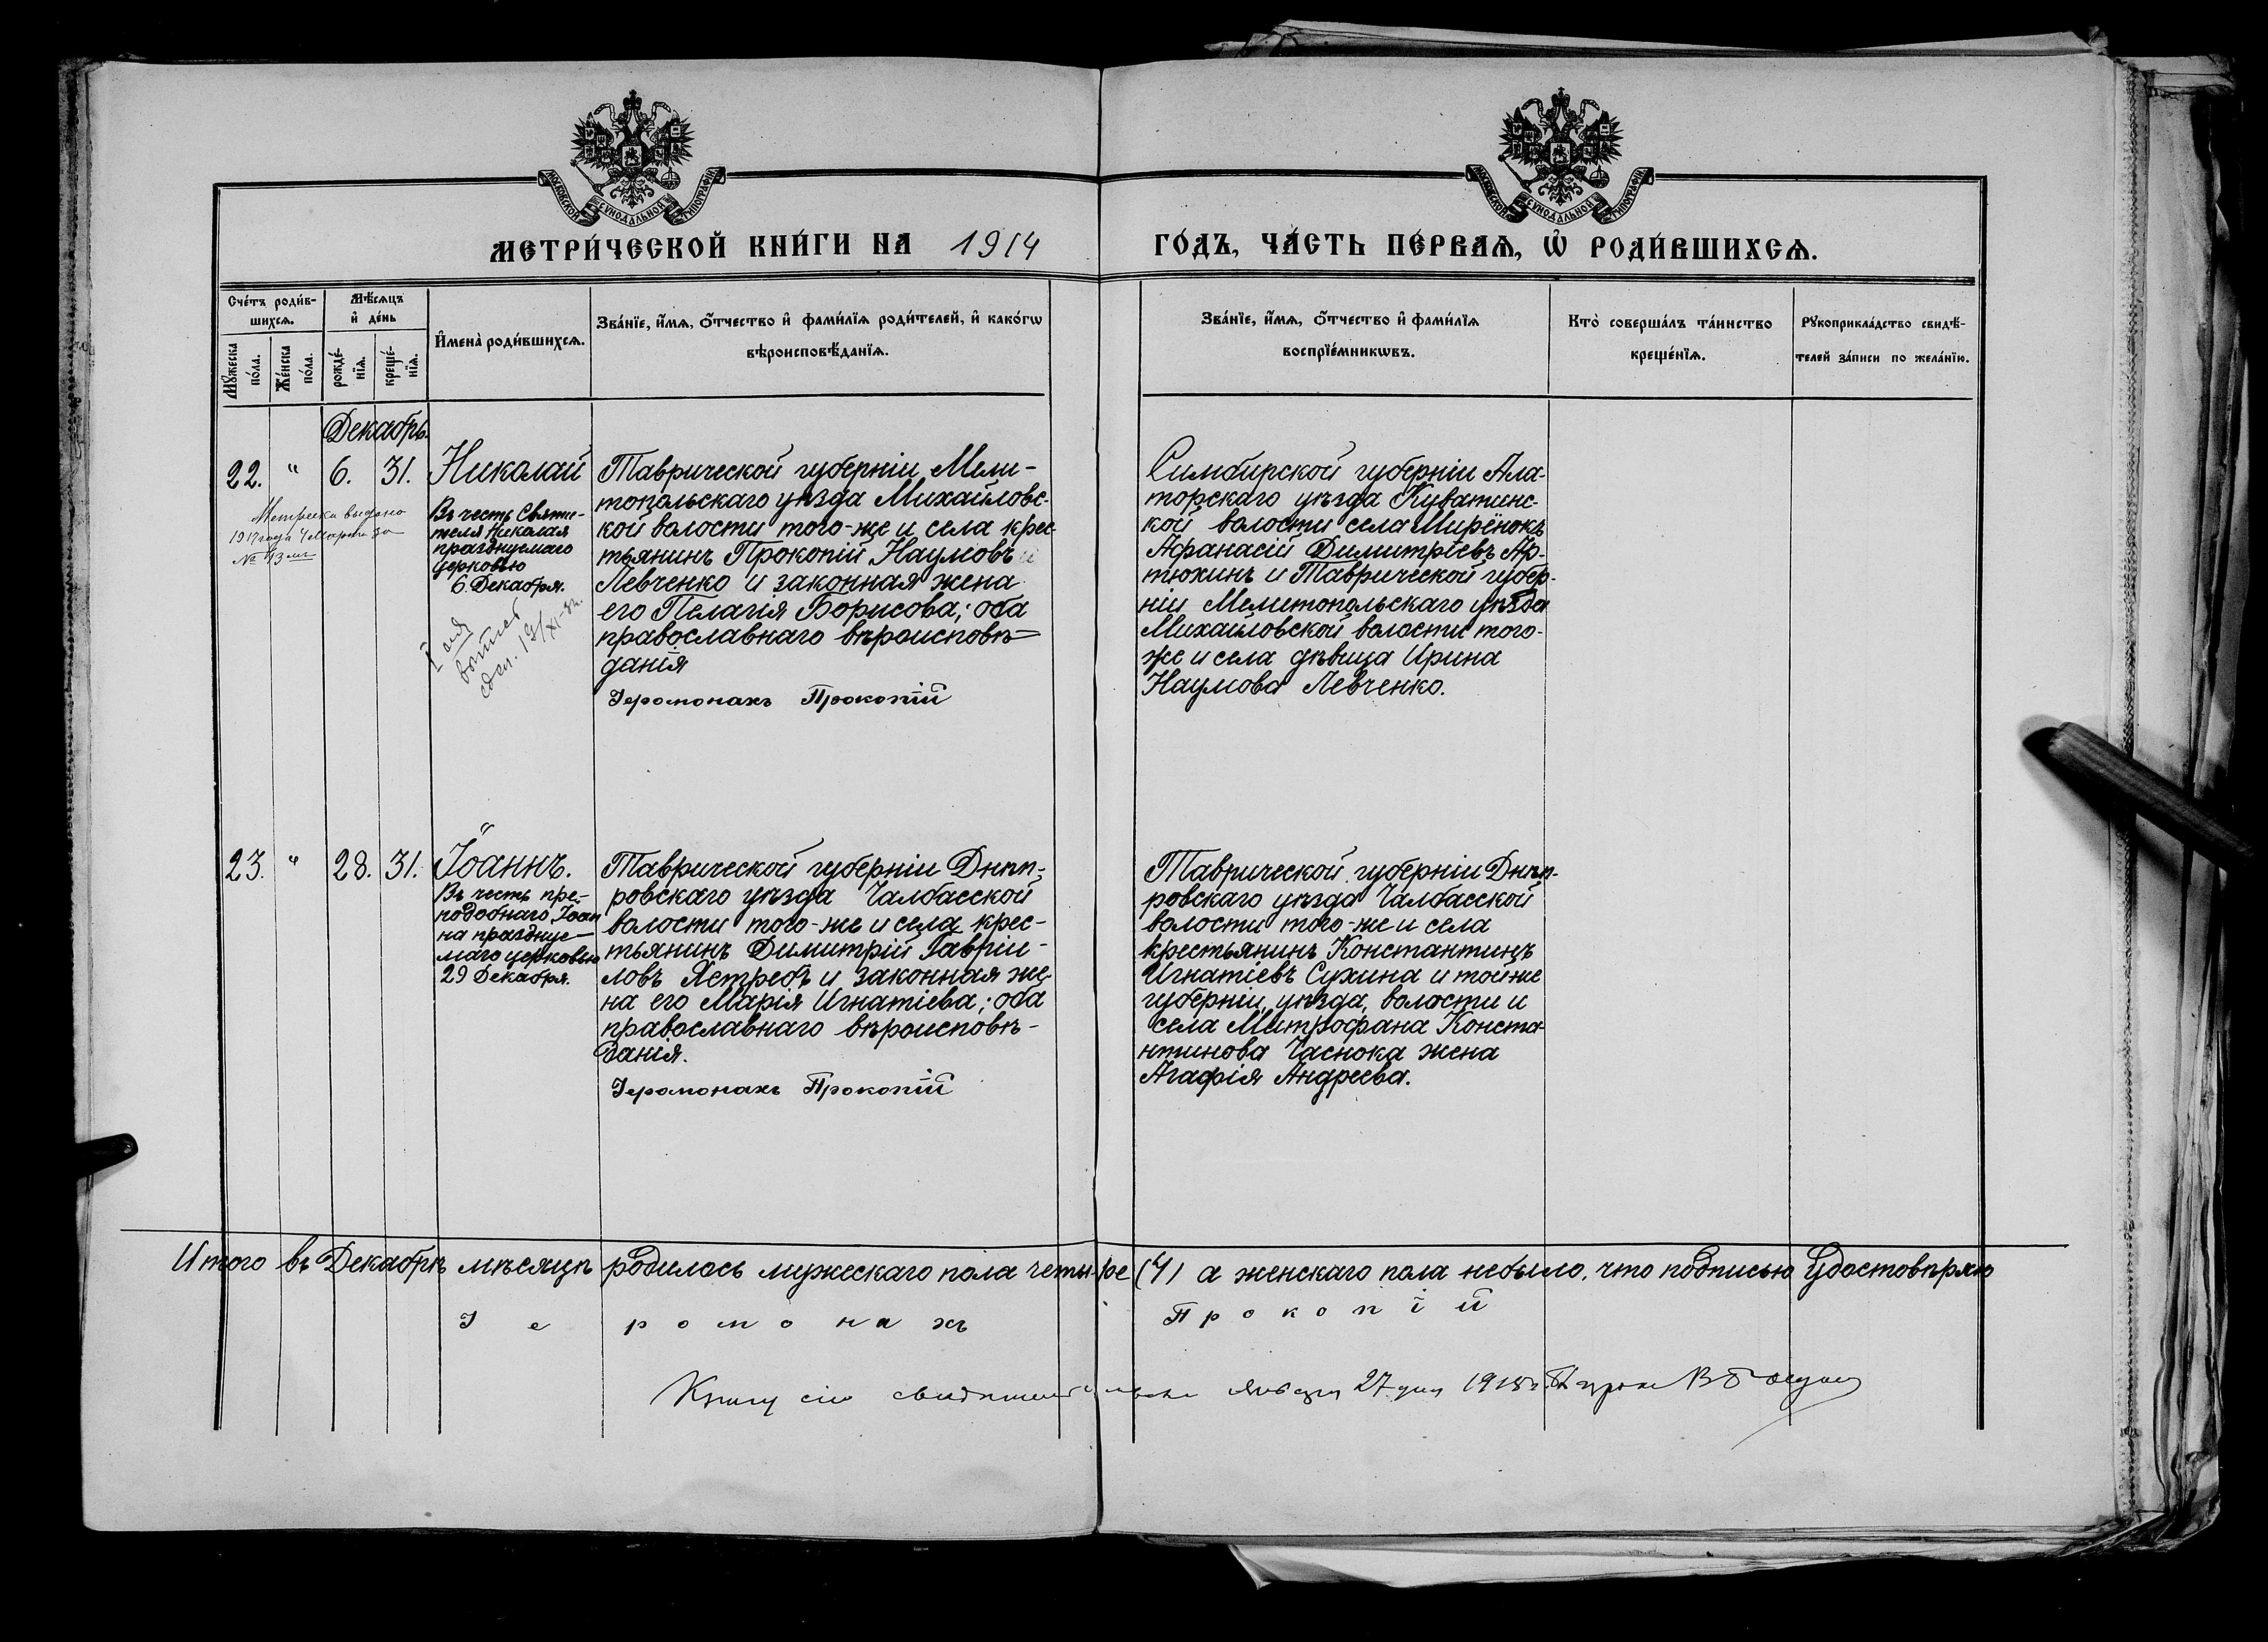 МОСКОВСКОЙ СѴНОДАЛЬНОЙ ТИПОГРАФІИ
МОСКОВСКОЙ СѴНОДАЛЬНОЙ ТИПОГРАФІИ
МЕТРИ́ЧЕСКОЙ КНИ́ГИ НА 1914
ГО́ДЪ, ЧА́СТЬ ПЕ́РВАѦ, Ѡ҆ РОДИ́ВШИХСѦ.
Сче́тъ роди́в-
шихсѧ.
Мꙋжеска
по́ла.
Же́нска
по́ла.
Мѣ́сѧцъ
и҆ де́нь
рожде́-
нїѧ.
креще́-
нїѧ.
И҆мена̀ роди́вшихсѧ.
Зва́нїе, и҆́мѧ, о҆́тчество и҆ фами́лїѧ роди́телей, и҆ како́гѡ
вѣроисповѣ́данїѧ.
Зва́нїе, и҆́мѧ, о҆́тчество и҆ фами́лїѧ
воспрїе́мникѡвъ.
Кто̀ соверша́лъ та́инство
креще́нїѧ.
Рꙋкоприкла́дство свидѣ́-
телей за́писи по жела́нїю.
Декабрь.
22. " 6. 31. Николай
Метрика выдана
1917 года 4 Марта за
№ 43
Въ честь Святи-
теля Николая
празднуемаго
церковью
6 Декабря.
Таврической губерніи Мели-
топольскаго уѣзда Михайловс-
кой волости того-же и села крес-
тьянинъ Прокопій Наумовъ
Левченко и законная жена
его Пелагія Борисова; оба
православнаго вѣроисповѣ-
данія
Іеромонахъ Прокопій
Симбирской губерніи Ала-
торскаго уѣзда Куватинс-
кой волости села Мирёнокъ
Афанасій Димитріевъ Ар-
тюхинъ и Таврической губер-
ніи Мелитопольскаго уѣзда
Михайловской волости того-
же и села дѣвица Ирина
Наумова Левченко.
23. " 28. 31. Іоаннъ.
Въ честь пре-
подобнаго Іоан
на празднуе-
маго церковью
29 Декабря.
Таврической губерніи Днѣп-
ровскаго уѣзда Чалбасской
волости того-же и села крес-
тьянинъ Димитрій Гавріи-
ловъ Ястребъ и законная же-
на его Марія Игнатіева; оба
православнаго вѣроисповѣ-
данія.
Іеромонахъ Прокопій
Таврической губерніи Днѣп-
ровскаго уѣзда Чалбасской
волости того-же и села
крестьянинъ Константинъ
Игнатіевъ Сухина и тойже
губерніи, уѣзда, волости и
села Митрофана Конста-
нтинова Часнока жена
Агафія Андреева.
Итого въ Декабрѣ мѣсяцѣ родилось мужескаго пола четыре (4) а женскаго пола небыло. что подписью удостовѣряю
Іеромонахъ Прокопій
Книгу сію января 27 дня 1915 г.